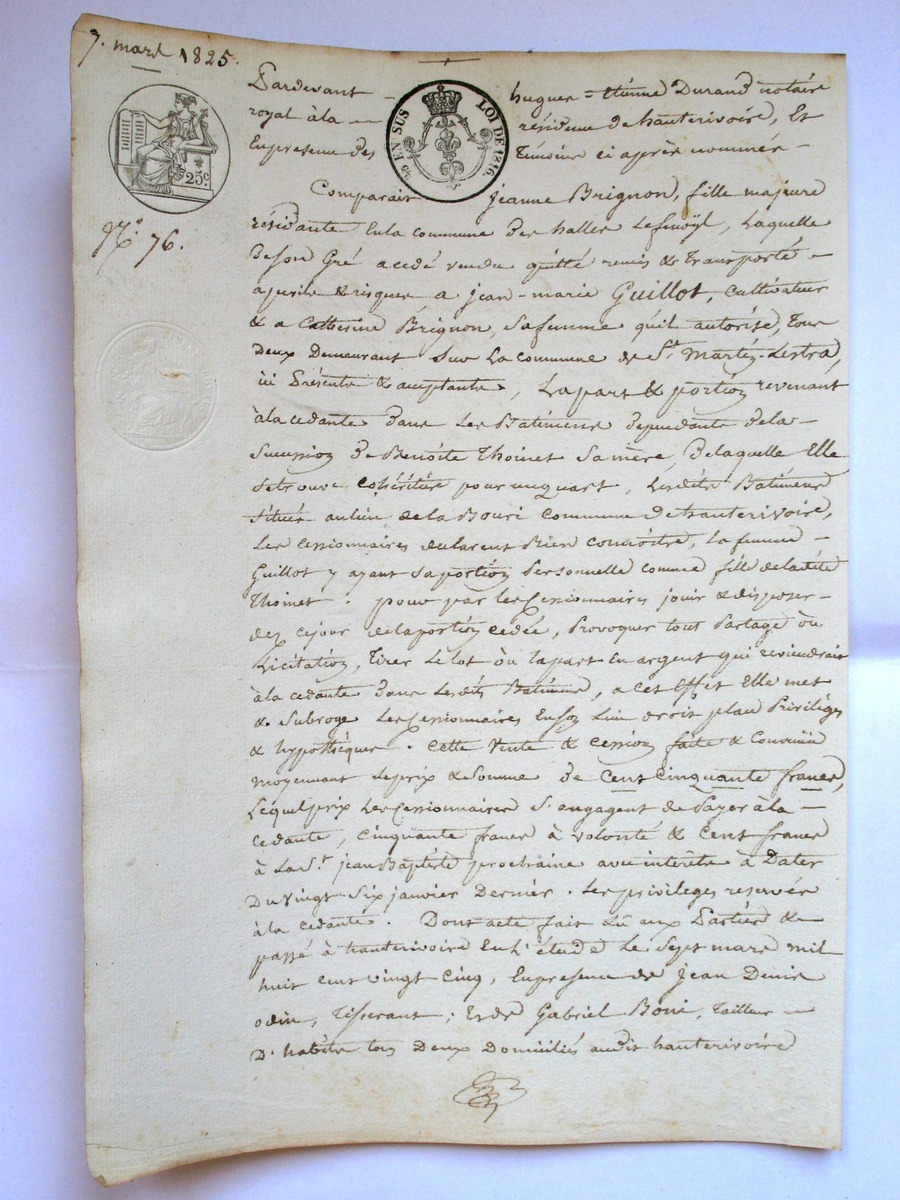 7. mars 1825.
Pardevant hugues = étienne Durand notaire
royal à la résidence de hauterivoire, Et
En presence des Témoins ci après nommés
EN SUS LOI DE 1816.
25 c.
Comparait jeanne Brignon, fille majeure
N.° 76.
résidante En la commune des halles Lefenoÿl, Laquelle
De son Gré a cedé vendu quitté remis & transporté
a perils & risques a jean-marie Guillot, cultivateur
& a Catherine Brignon, sa femme qu'il autorise, tous
deux Demeurant sur La commune de S.t Martin-Lestra,
ici Présents & acceptants, La part & portion revenant
à la cedante dans Les Batimens dependants de la
Succession de Benoite Thoinet sa mère, de laquelle Elle
se trouve cohéritière pour un quart, Lesdits Batimens
situés au lieu de la Bouri commune de hauterivoire,
Les cessionnaires declarent Bien connoitre, la femme
Guillot y ayant sa portion Personnelle comme fille de ladite
Thoinet. pour par les Cessionnaires jouir & disposer
dez ce jour de la portion cedée, Provoquer tout Partage où
Licitation, Tirer Le lot où la part En argent qui reviendrait
à la cedante dans lesdits Batimens, a cet Effet Elle met
& subroge Les Cessionnaires En son Lieu droit place Privilèges
& hypothèques. Cette Vente & cession faite & Convenüe
moyennant Le prix & Somme de Cent Cinquante francs,
Lequel prix Les Cessionnaires S'engagent de Payer à la
cedante, Cinquante francs à volonté & Cent francs
à La S.t jean Baptiste prochaine avec intérêts à Dater
Du Vingt Six janvier Dernier. Les privileges reservés
à la cedante. Dont acte fait Lû aux Parties &
passé à hauterivoire En L'étude Le Sept mars mil
huit cent vingt cinq, En presence de Jean Denis
odin, Tisserant, Et de Gabriel Boni, Tailleur
D'habits tous Deux Domiciliés audit hauterivoire